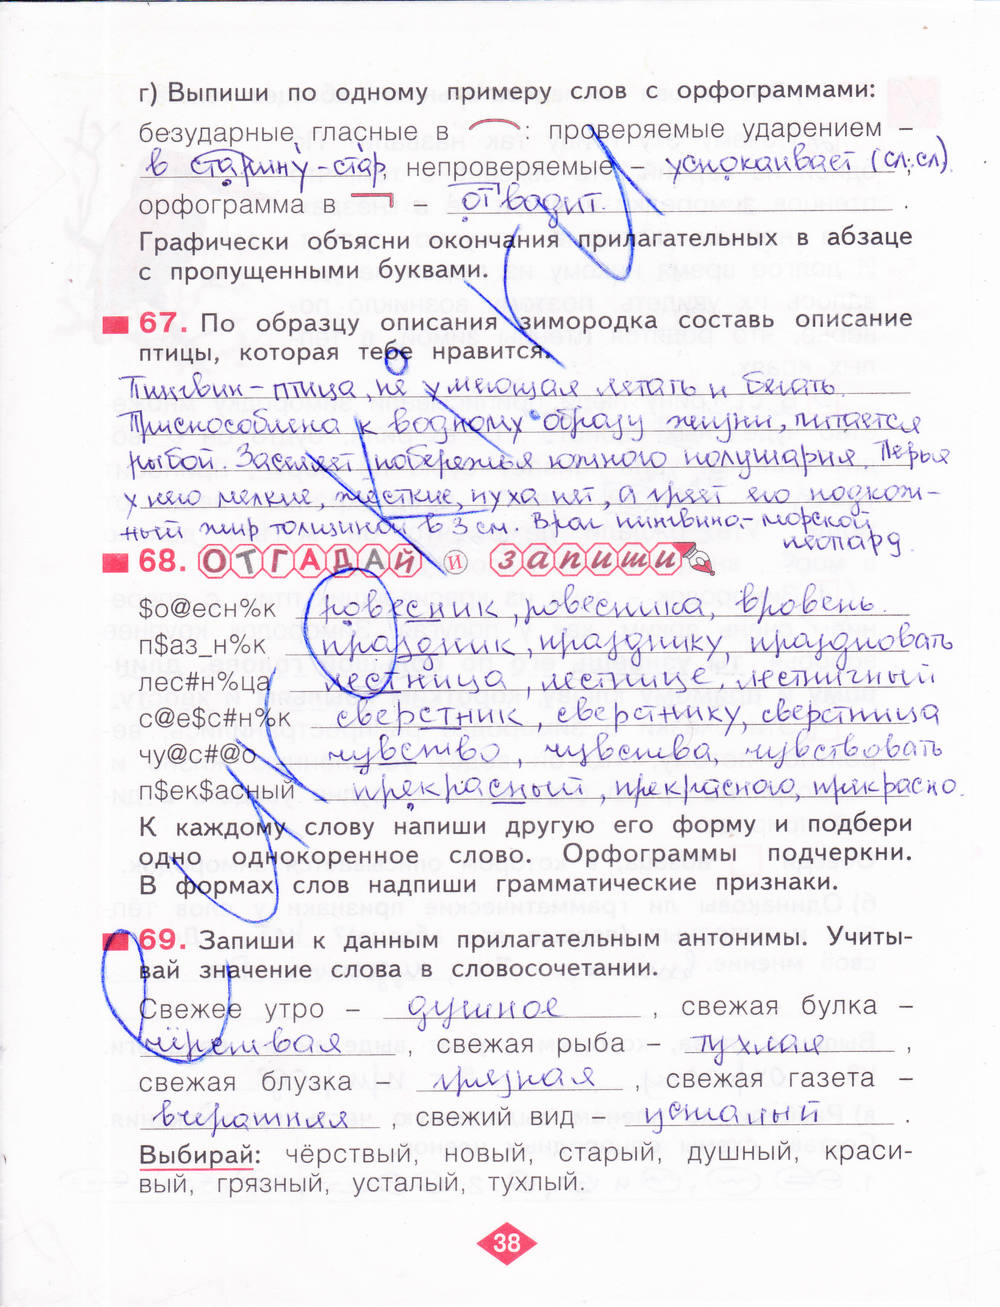 г) Выпиши по одному примеру слов с орфограммами:
безударные гласные в : проверяемые ударением –
в старину - стар, непроверяемые – успокаивает (сл. сл)
орфограмма в – отводит.
Графически объясни окончания прилагательных в абзаце
с пропущенными буквами.
67. По образцу описания зимородка составь описание
птицы, которая тебе нравится.
Пингвин - птица, не умеющая летать и бегать.
Приспособлена к водному образу жизни, питается
рыбой. Заселяет побережья южного полушария. Перья
у него мелкие, жёсткие, пуха нет, а греет его подкож-
ный жир толщиной в 3 см. Враг пингвина - морской
леопард.
68. ОТГАДАЙ И запиши
$о@есн%к ровесник, ровесника, вровень.
п$аз_н%к праздник, празднику, праздновать
лес#н%ца лестница, лестнице, лестничный
с@е$с#н%к сверстник, сверстнику, сверстница
чу@с#@о чувство, чувства, чувствовать
п$ек$асный – прекрасный, прекрасного, прекрасно.
К каждому слову напиши другую его форму и подбери
одно однокоренное слово. Орфограммы подчеркни.
В формах слов надпиши грамматические признаки.
69. Запиши к данным прилагательным антонимы. Учиты-
вай значение слова в словосочетании.
Свежее утро – душное, свежая булка –
чёрствая, свежая рыба – тухлая,
свежая блузка – грязная, свежая газета –
вчерашняя, свежий вид – усталый.
Выбирай: чёрствый, новый, старый, душный, краси-
вый, грязный, усталый, тухлый.
38